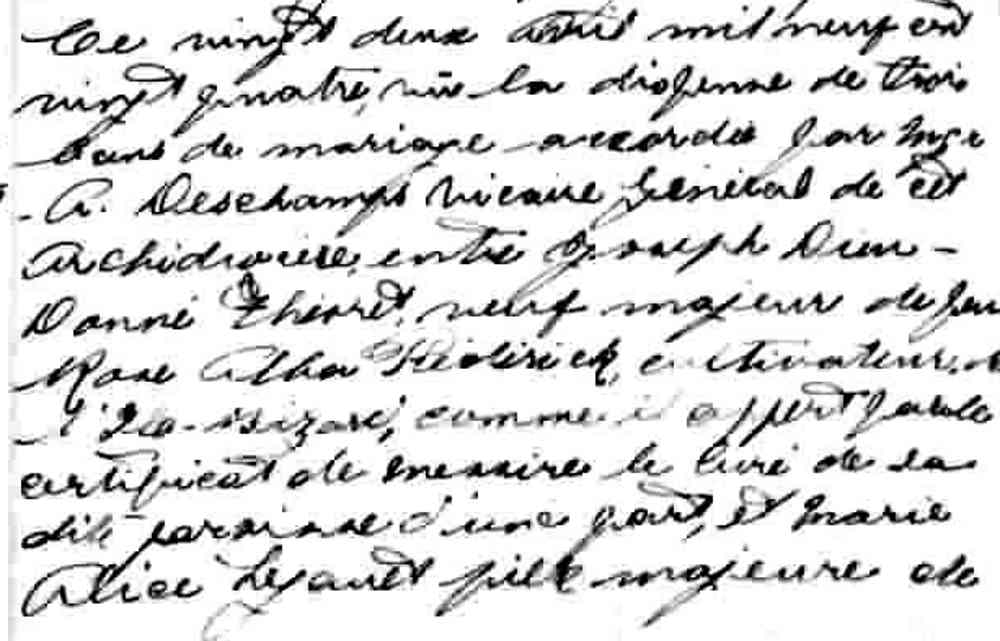 Ce vingt deux avril mil neuf cent
vingt quatre, vu la dispense de trois
bans de mariage accordée par Mgr
A. Deschamps Vicaire Général de cet
Archidiocèse, entre Joseph Dieu-
Donné Théoret, veuf majeur de feu
Rose Alba Fréderick, cultivateur, de
l'Ile-Bizard, comme il appert par le
certificat de messire le curé de la
dite paroisse d'une part, et Marie
Alice fille majeure de